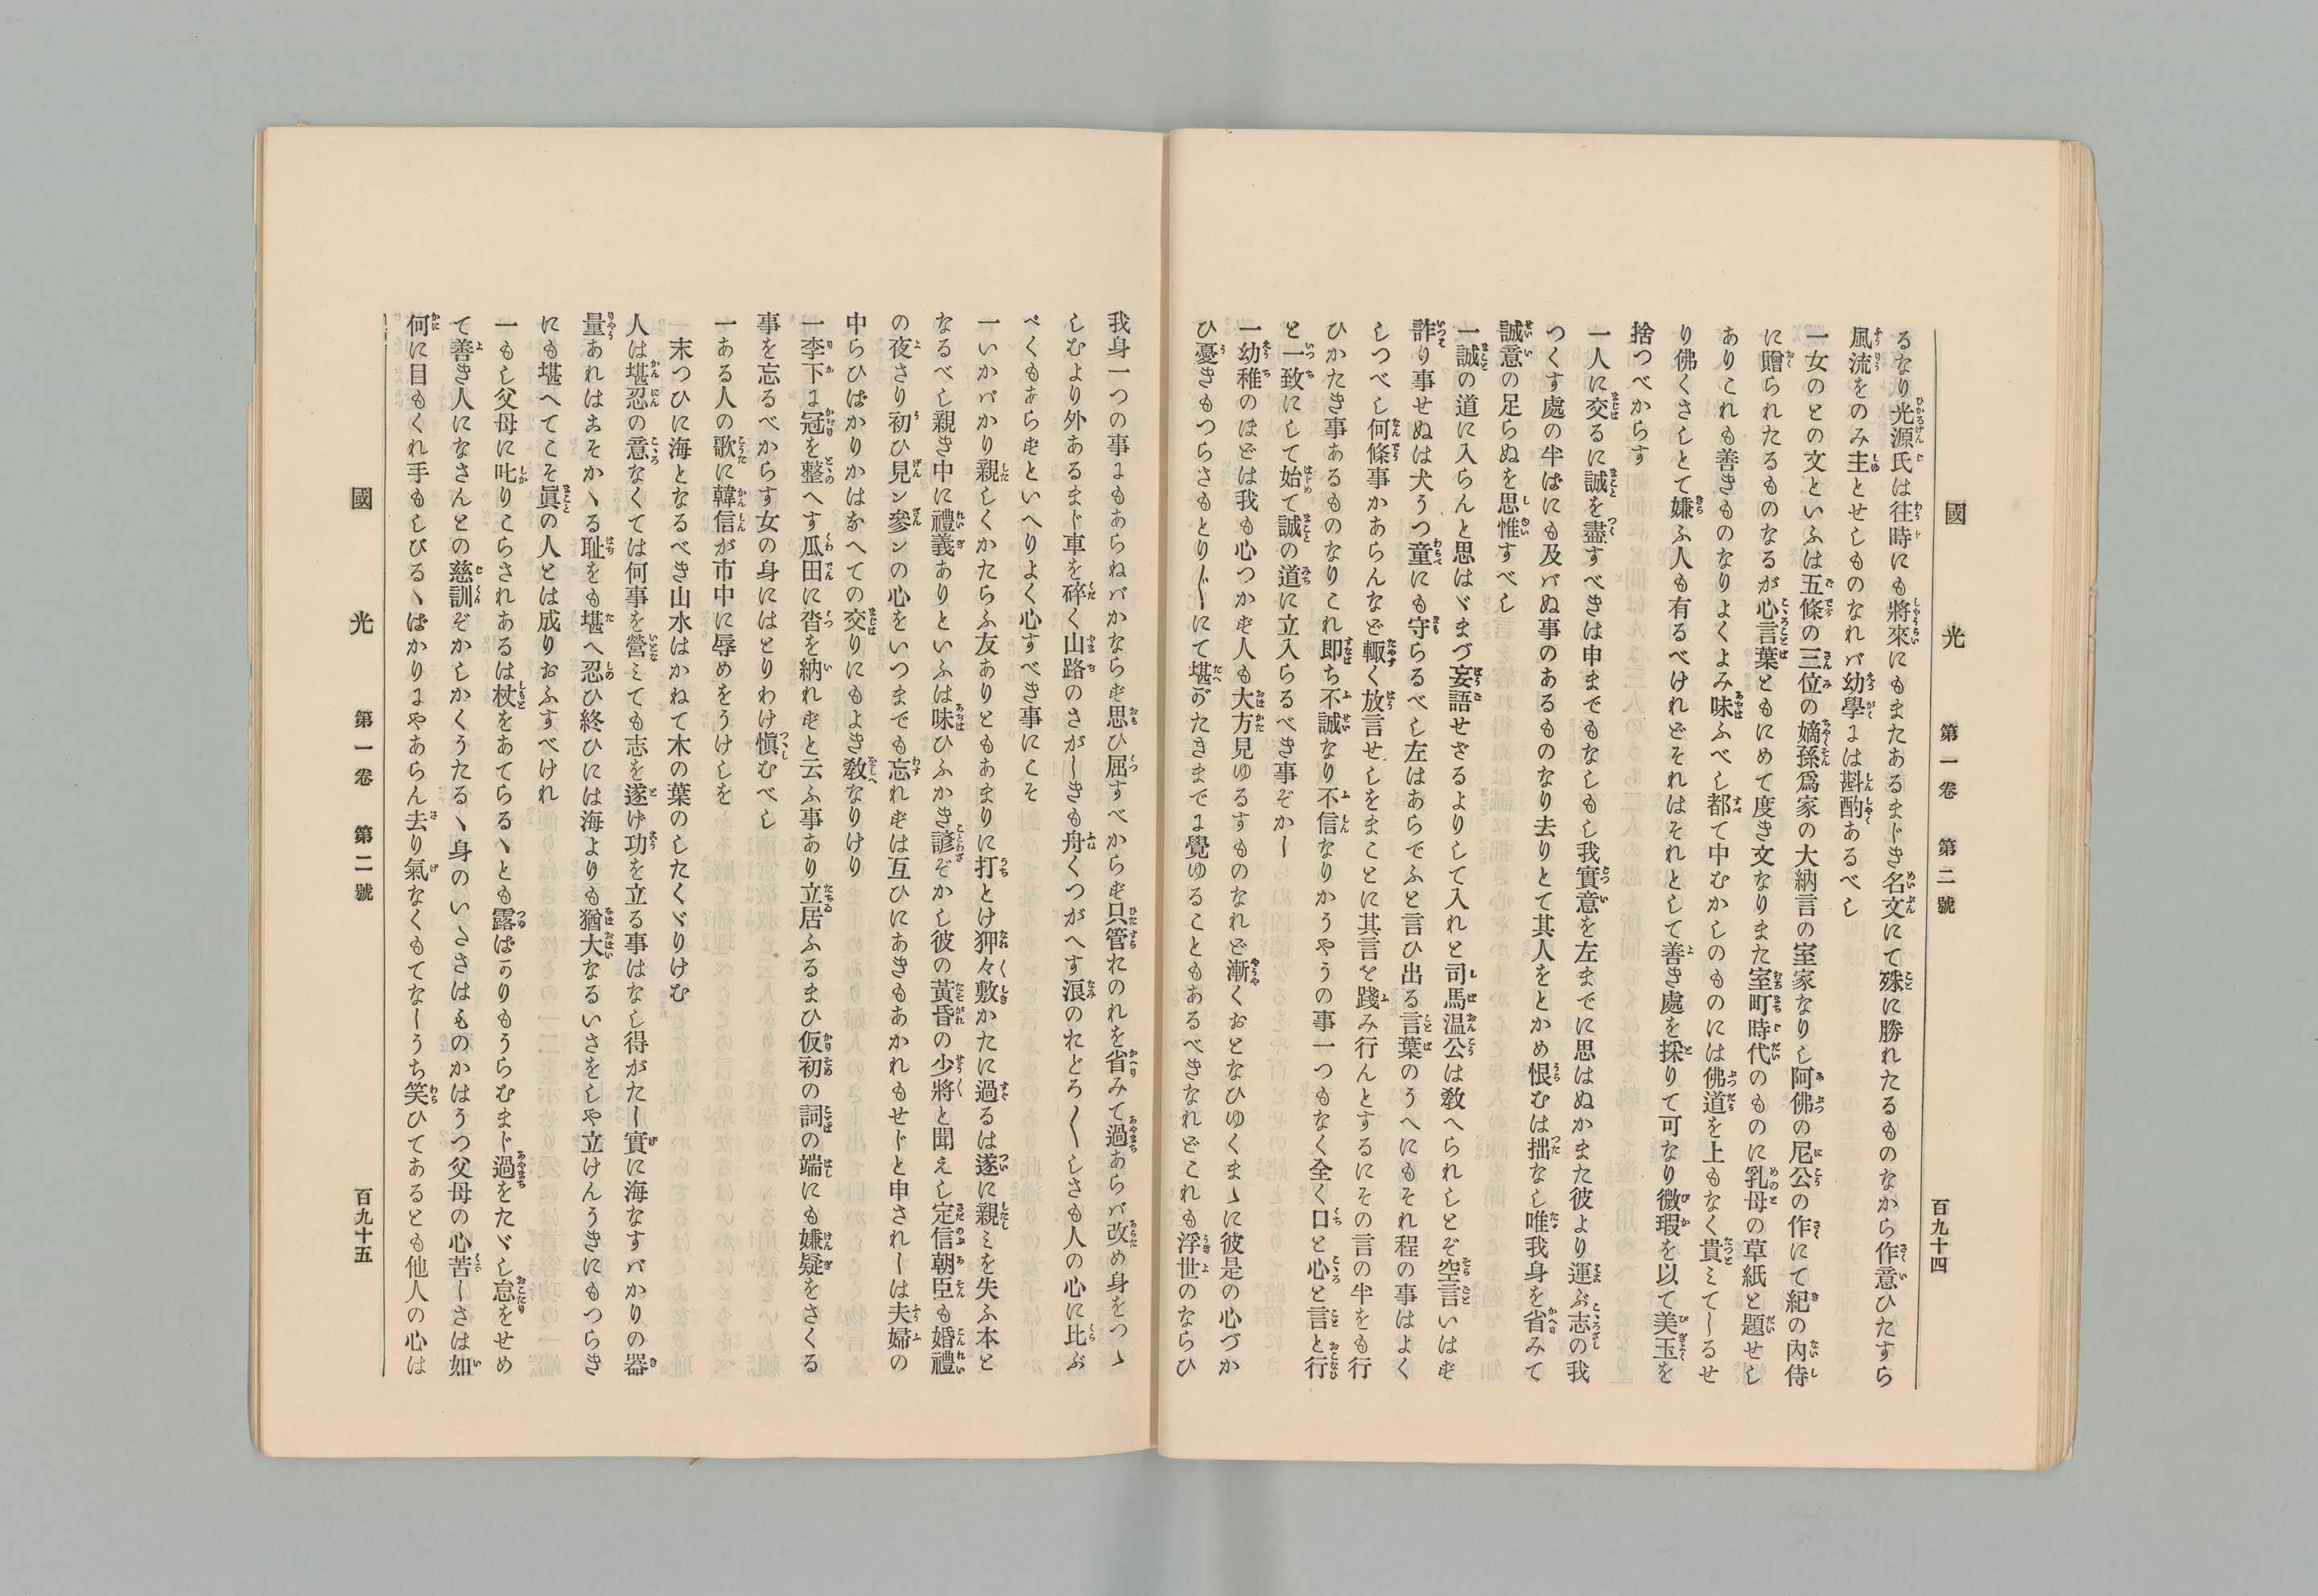 國光 第一卷 第二號 百九十四
るなり光源氏は往時にも將來にもまたあるまじき名文にて殊に勝れたるものなから作意ひたすら
風流をのみ主とせしものなれバ幼學には斟酌あるべし
一女のとの文といふは五條の三位の嫡孫爲家の大納言の室家なりし阿佛の尼公の作にて紀の內侍
に贈られたるものなるが心言葉ともにめて度き文なりまた室町時代のものに乳母の草紙と題せし
ありこれも善きものなりよくよみ味ふべし都て中むかしのものには佛道を上もなく貴ミてしるせ
り佛くさしとて嫌ふ人も有るべけれどそれはそれとして善き處を採りて可なり微瑕を以て美玉を
捨つべからす
一人に交るに誠を盡すべきは申までもなしもし我實意を左までに思はぬかまた彼より運ぶ志の我
つくす處の半ばにも及バぬ事のあるものなり去りとて其人をとかめ恨むは拙なし唯我身を省みて
誠意の足らぬを思惟すべし
一誠の道に入らんと思はゞまづ妄語せさるよりして入れと司馬温公は敎へられしとぞ空言いはず
詐り事せぬは犬うつ童にも守らるべし左はあらでふと言ひ出る言葉のうへにもそれ程の事はよく
しつべし何條事かあらんなど輙く放言せしをまことに其言を踐み行んとするにその言の半をも行
ひかたき事あるものなりこれ即ち不誠なり不信なりかうやうの事一つもなく全く口と心と言と行
と一致にして始て誠の道に立入らるべき事ぞかし
一幼稚のほどは我も心つかず人も大方見ゆるすものなれど漸くおとなひゆくまゝに彼是の心づか
ひ憂きもつらさもとり〴〵にて堪がたきまでに覺ゆることもあるべきなれどこれも浮世のならひ
我身一つの事にもあらねバかならず思ひ屈すべからず只管れのれを省みて過あらバ改め身をつゝ
しむより外あるまじ車を碎く山路のさがしきも舟くつがへす浪のれどろ〳〵しさも人の心に比ぶ
べくもあらずといへりよく心すべき事にこそ
一いかバかり親しくかたらふ友ありともあまりに打とけ狎々敷かたに過るは遂に親ミを失ふ本と
なるべし親き中に禮義ありといふは味ひふかき諺ぞかし彼の黃昏の少將と聞えし定信朝臣も婚禮
の夜さり初ひ見ン參ンの心をいつまでも忘れずは互ひにあきもあかれもせじと申されしは夫婦の
中らひばかりかはなへての交りにもよき敎なりけり
一李下に冠を整へす瓜田に沓を納れずと云ふ事あり立居ふるまひ仮初の詞の端にも嫌疑をさくる
事を忘るべからす女の身にはとりわけ愼むべし
一ある人の歌に韓信が市中に辱めをうけしを
末つひに海となるべき山水はかねて木の葉のしたくゞりけむ
人は堪忍の意なくては何事を營ミても志を遂げ功を立る事はなし得がたし實に海なすバかりの器
量あれはまそかゝる耻をも堪へ忍ひ終ひには海よりも猶大なるいさをしや立けんうきにもつらき
にも堪へてこそ眞の人とは成りおふすべけれ
一もし父母に叱りこらされあるは杖をあてらるゝとも露ばかりもうらむまじ過をたゞし怠をせめ
て善き人になさんとの慈訓ぞかしかくうたるゝ身のいたさはものかはうつ父母の心苦しさは如
何に目もくれ手もしびるゝばかりにやあらん去り氣なくもてなしうち笑ひてあるとも他人の心は
國光 第一卷 第二號 百九十五